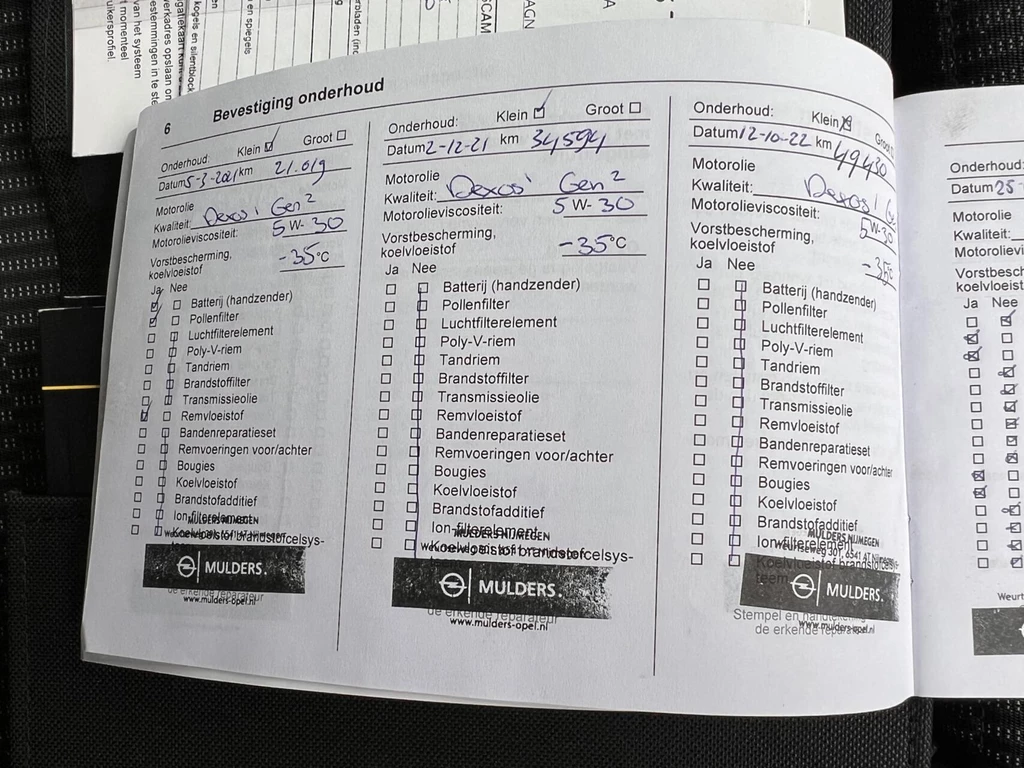 6 Bevestiging onderhoud
Onderhoud: Klein Groot
Datum 5-3-2021 km 21.019
Motorolie
Kwaliteit: Dexos 1 Gen 2
Motorolieviscositeit: 5W-30
Vorstbescherming,
koelvloeistof -35°C
Ja Nee
Batterij (handzender)
Pollenfilter
Luchtfilterelement
Poly-V-riem
Tandriem
Brandstoffilter
Transmissieolie
Remvloeistof
Bandenreparatieset
Remvoeringen voor/achter
Bougies
Koelvloeistof
Brandstofadditief
Ion-filterelement
Koelvloeistof brandstofcelsys-
MULDERS NIJMEGEN
MULDERS.
de erkende reparateur
www.mulders-opel.nl
Onderhoud: Klein Groot
Datum 2-12-21 km 34594
Motorolie
Kwaliteit: Dexos 1 Gen 2
Motorolieviscositeit: 5W-30
Vorstbescherming,
koelvloeistof -35°C
Ja Nee
Batterij (handzender)
Pollenfilter
Luchtfilterelement
Poly-V-riem
Tandriem
Brandstoffilter
Transmissieolie
Remvloeistof
Bandenreparatieset
Remvoeringen voor/achter
Bougies
Koelvloeistof
Brandstofadditief
Ion-filterelement
MULDERS NIJMEGEN
Koelvloeistof brandstofcelsys-
MULDERS.
de erkende reparateur
www.mulders-opel.nl
Onderhoud: Klein
Datum 12-10-22 km 49430
Motorolie
Kwaliteit: Dexos 1
Motorolieviscositeit: 5W-30
Vorstbescherming,
koelvloeistof -35°
Ja Nee
Batterij (handzender)
Pollenfilter
Luchtfilterelement
Poly-V-riem
Tandriem
Brandstoffilter
Transmissieolie
Remvloeistof
Bandenreparatieset
Remvoeringen voor/achter
Bougies
Koelvloeistof
Brandstofadditief
MULDERS NIJMEGEN
Ion-filterelement
Weurtseweg 301, 6541 AT Nijmegen
Koelvloeistof brandstofcelsys-
teem
MULDERS.
Stempel en handtekening
de erkende reparateur
www.mulders-opel.nl
Onderhoud:
Datum 25-
Motorolie
Kwaliteit:
Motorolievi
Vorstbesch
koelvloeist
Ja Nee
Weurt